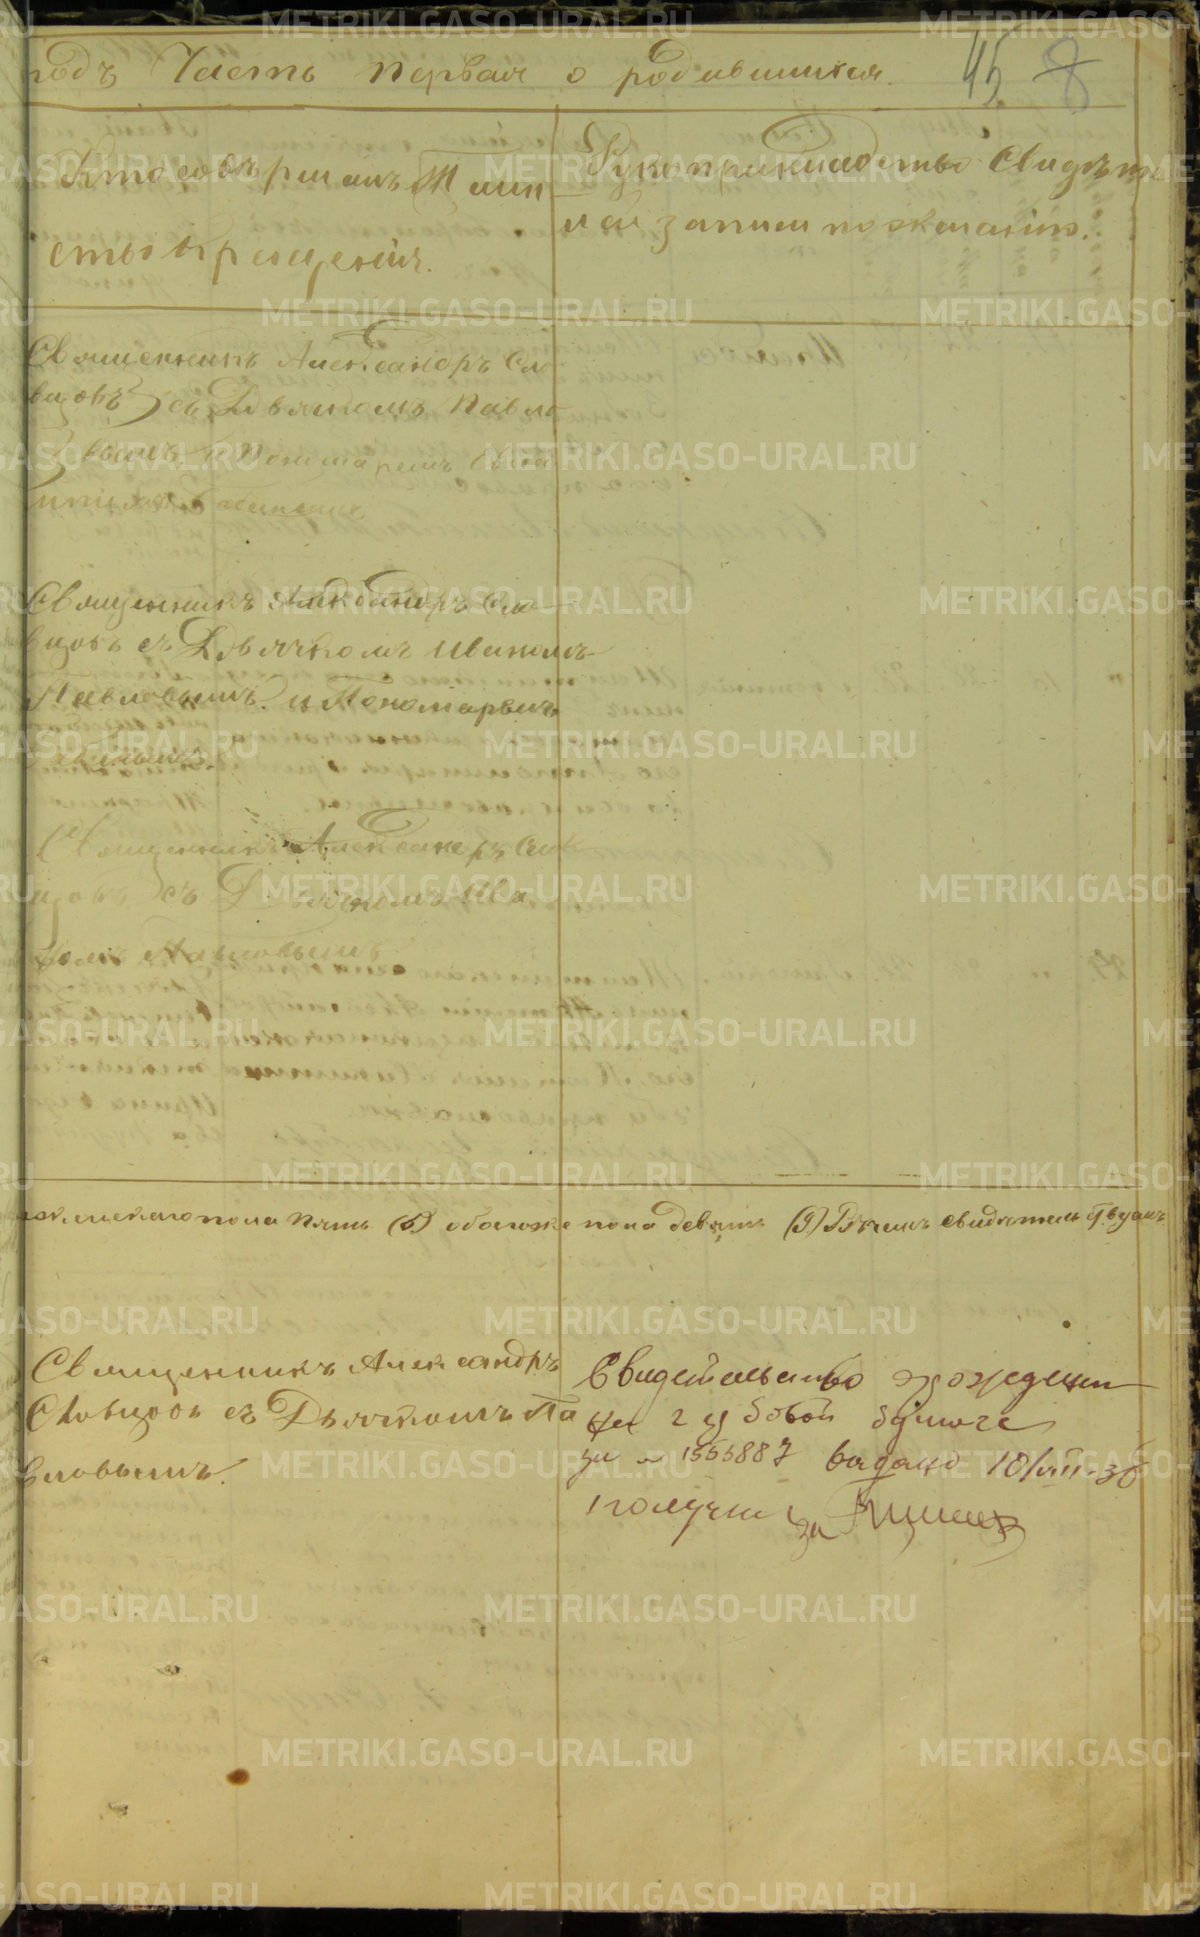 годъ Часть первая о родившихся. 45 8
Кто совершалъ Таин
ство крещенія.
Рукоприкладство свидѣте
лей записи по желанію.
Священникъ Александръ Сло
вцовъ съ Дьячкомъ Павло
вымъ и Пономаремъ
Священникъ Александръ Сло
вцовъ съ Дьячкомъ Иваномъ
Павловымъ и Пономаремъ
Священникъ Александръ Сло
вцовъ съ Дьячкомъ Ива
номъ Павловымъ
женскаго пола пять (5) обоего же пола девять (9) Въ чемъ свидѣтельствуемъ
Священникъ Александръ
Словцовъ съ Дьячкомъ Па
вловымъ.
Свидетельство о рождении
на гербовой бумаге
за № 1553887 выдано 10/VIII-36
получил за
METRIKI.GASO-URAL.RU